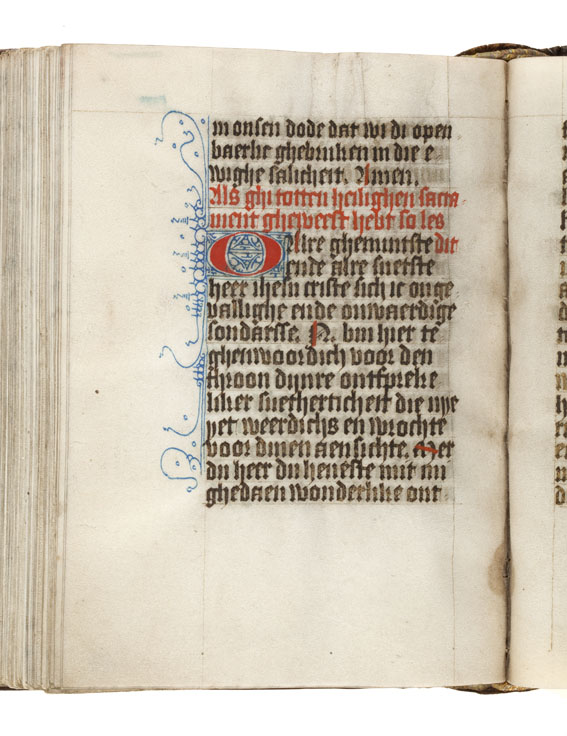 in onsen dode dat wi di open
baerlic ghebruken in die e
wighe salicheit. Amen.
Als ghi totten heilighen sacra
ment gheweest hebt so les
O Alre ghemintste dit
ende alre suetste
heer ihesu criste sich ic onge
vallighe ende onwaerdige
sondarsse. N. bin hier te
ghenwoordich voor den
throon dijnre ontsprekeliker
suetherticheit die nye
yet weerdichs en wrochte
voor dinen aensichte. Mer
du heer du heueste mit mi
ghedaen wonderlike ont